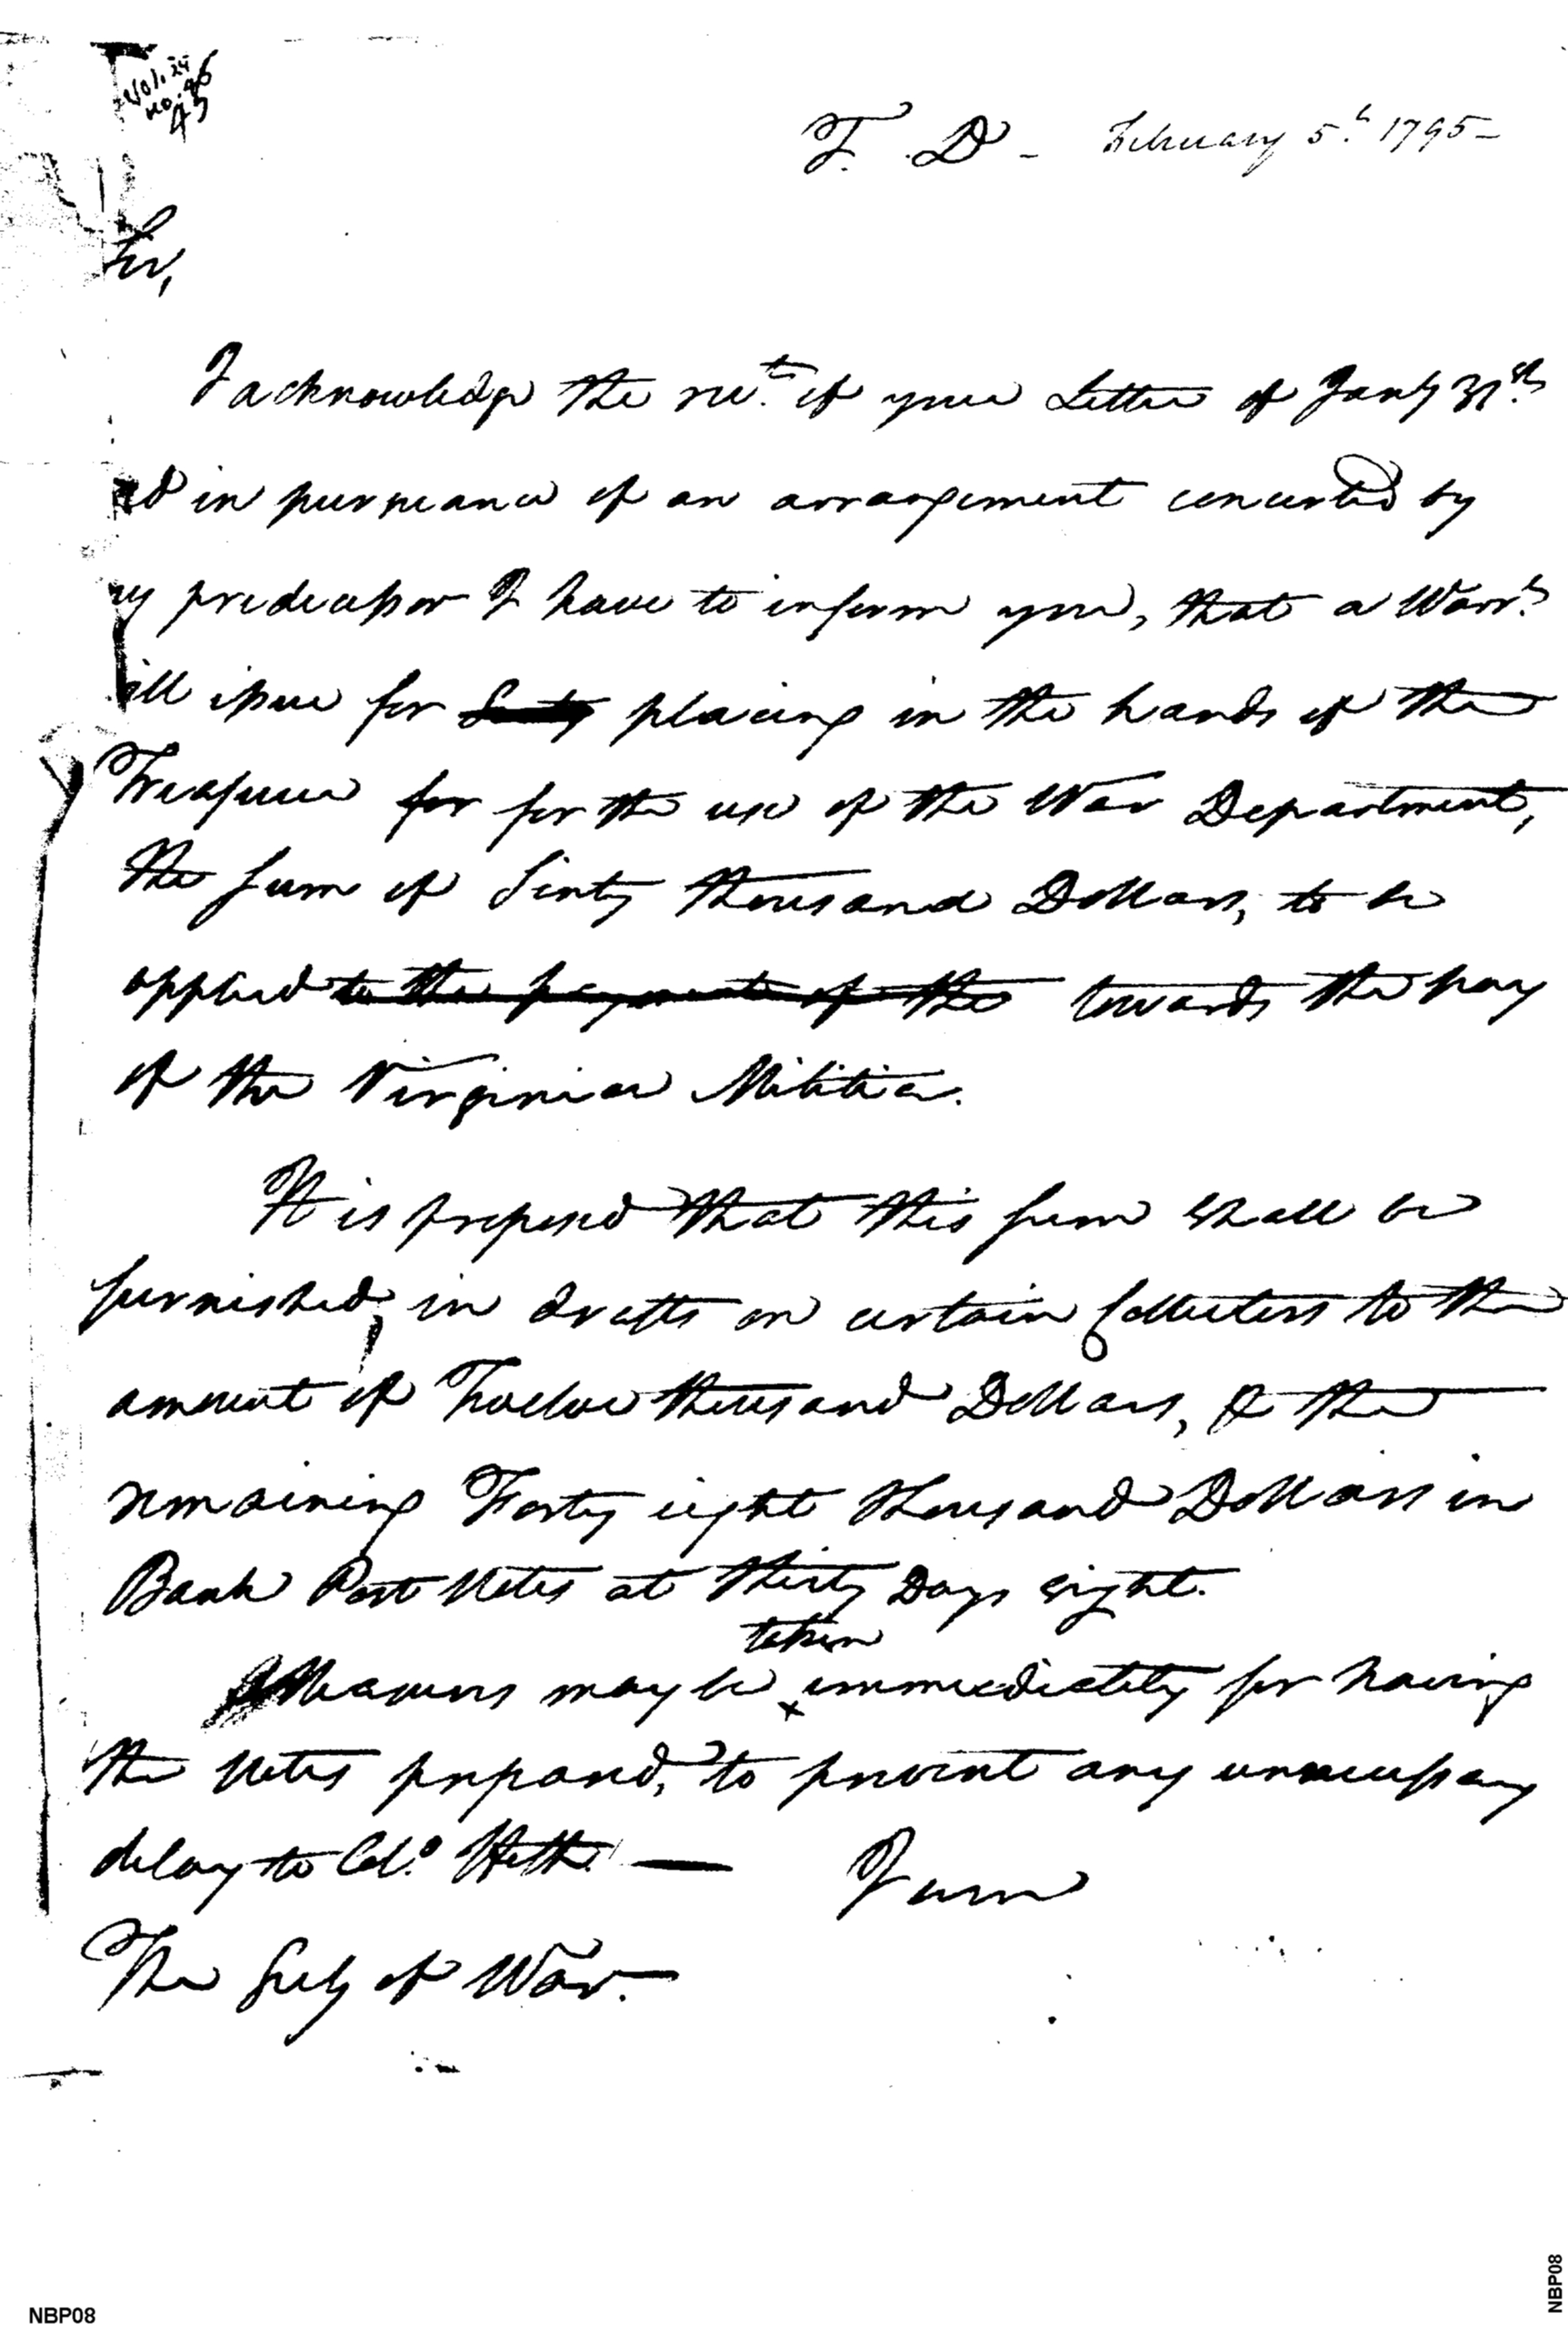 Vol. 24
No. 96
43
T. D - February 5.th 1795 -
Sir,
I acknowledge the rect. of your Letter of Jany 31st
nd in pursuance of an arrangement concerted by
my predecessor I have to inform you, that a Warrt.
ill issue for Sixty placing in the hands of the
Treasurer for for the use of the War Department,
the sum of Sixty thousand Dollars, to be
applied to the payment of the towards the pay
of the Virginia Militia.
It is proposed that this sum shall be
furnished, in drafts on certain Collectors to the
amount of Twelve thousand Dollars, & the
remaining Forty eight thousand Dollars in
Bank Post Notes at thirty Days sight.
taken
Measures may be x immediately for having
the Notes prepared, to prevent any unnecessary
delay to Colo. Heth. —
I am
The Secy of War.
NBP08
NBP08